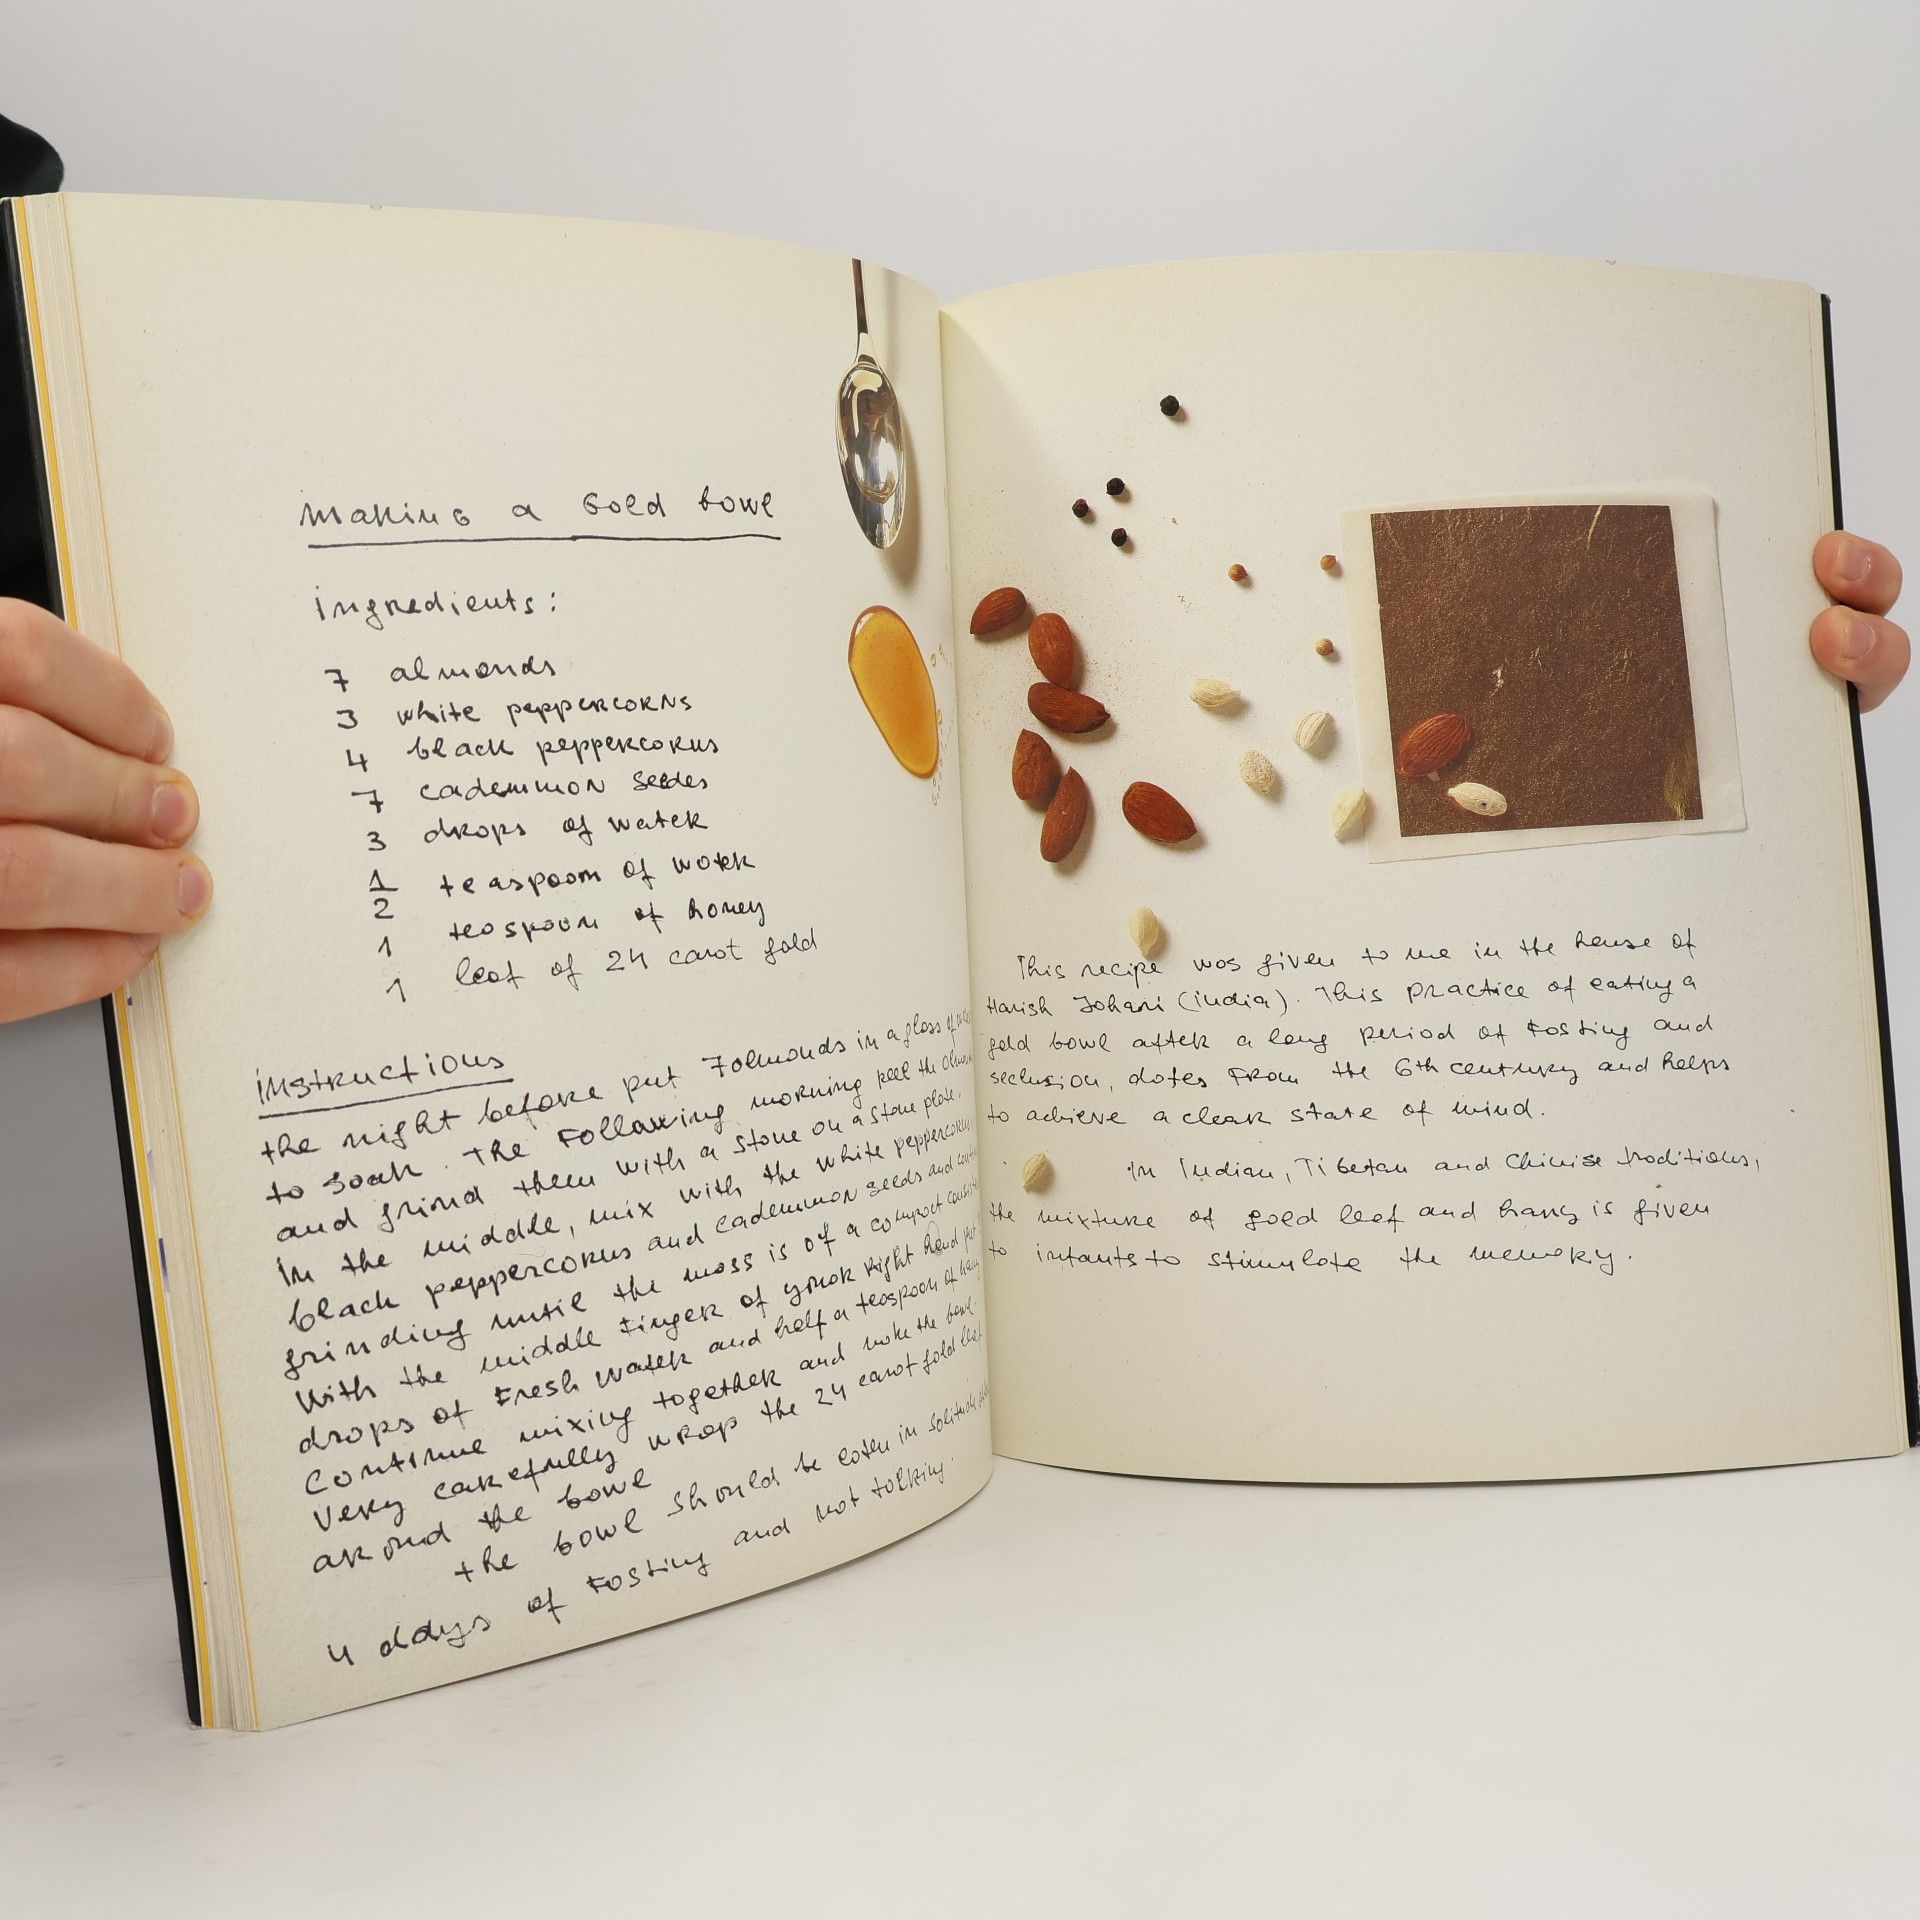 making a Gold bowl
ingredients:
7 almonds
3 white peppercorns
4 black peppercorns
7 cademmon seedes
3 drops of water
1/2 teaspoom of water
1 teospoon of honey
1 leaf of 24 carot gold
instructions
the night before put 7 almonds in a glass of
to soak. The following morning peel the
and grind them with a stone on a stone plate.
In the middle, mix with the white peppercorns
black peppercorns and cademmon seeds and
grinding until the mass is of a compact
With the middle finger of your right hand put
drops of fresh water and half a teaspoon of
Continue mixing together and make the bowl.
Very carefully wrap the 24 carot gold leaf
around the bowl
the bowl should be eaten in solitude
4 ddays of fasting and not talking.
This recipe was given to me in the house of
Harish Johari (india). This practice of eating a
gold bowl after a long period of fasting and
seclusion, dates from the 6th century and helps
to achieve a clear state of mind.
In Indian, Tibetan and Chinise traditions,
the mixture of gold leaf and hany is given
to infants to stimulate the memory.